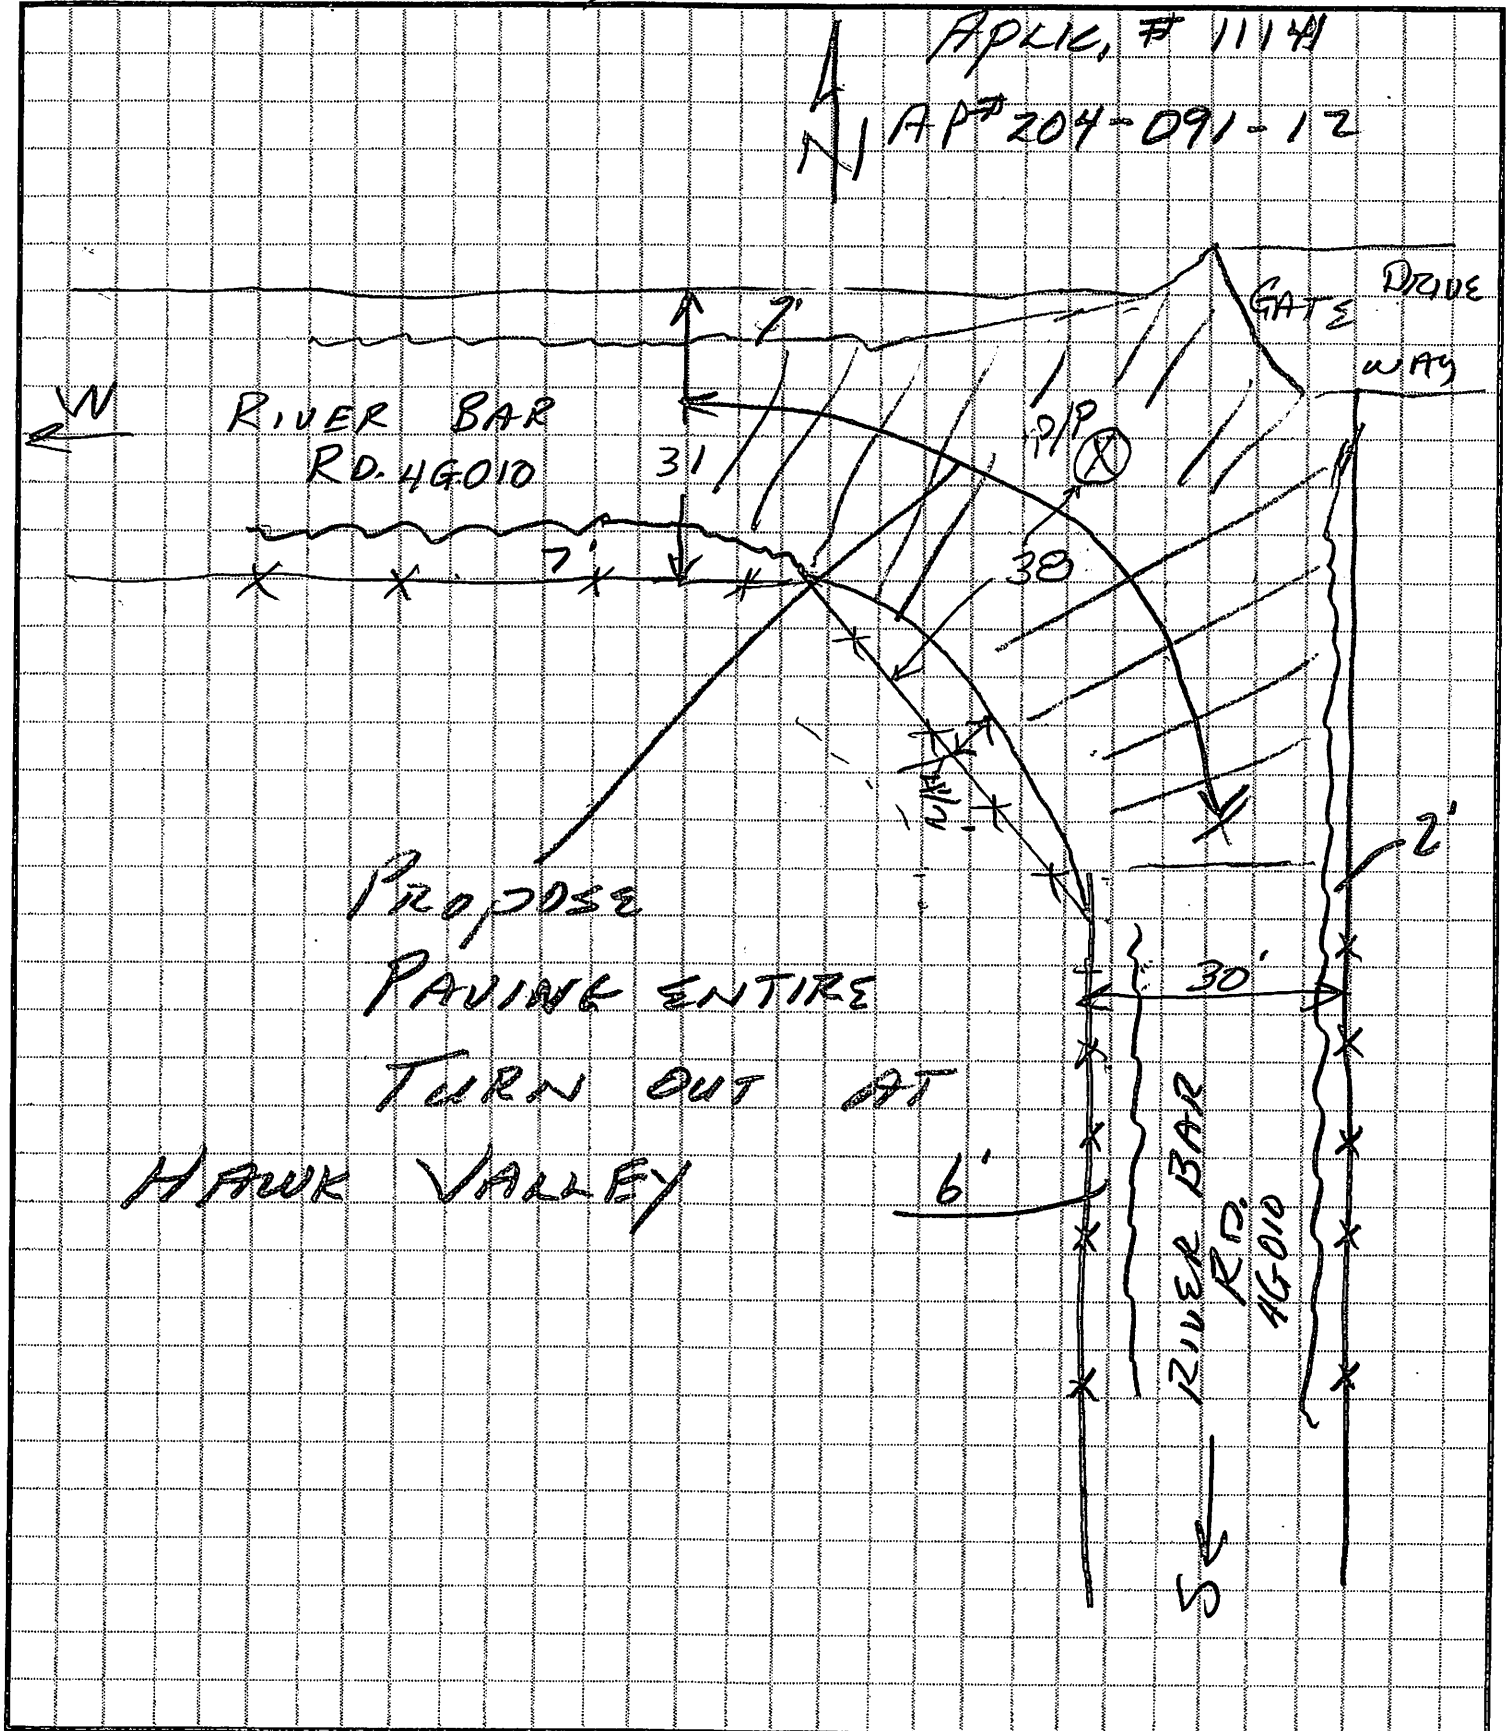 APLIC, # 11141
N AP# 204-091-12
GATE DRIVE
WAY
7'
W
RIVER BAR
RD. 4G010
31
P/P
7'
38
2'
PROPOSE
PAVING ENTIRE
TURN OUT AT
HAWK VALLEY
30'
6'
RIVER BAR
RD.
4G010
S